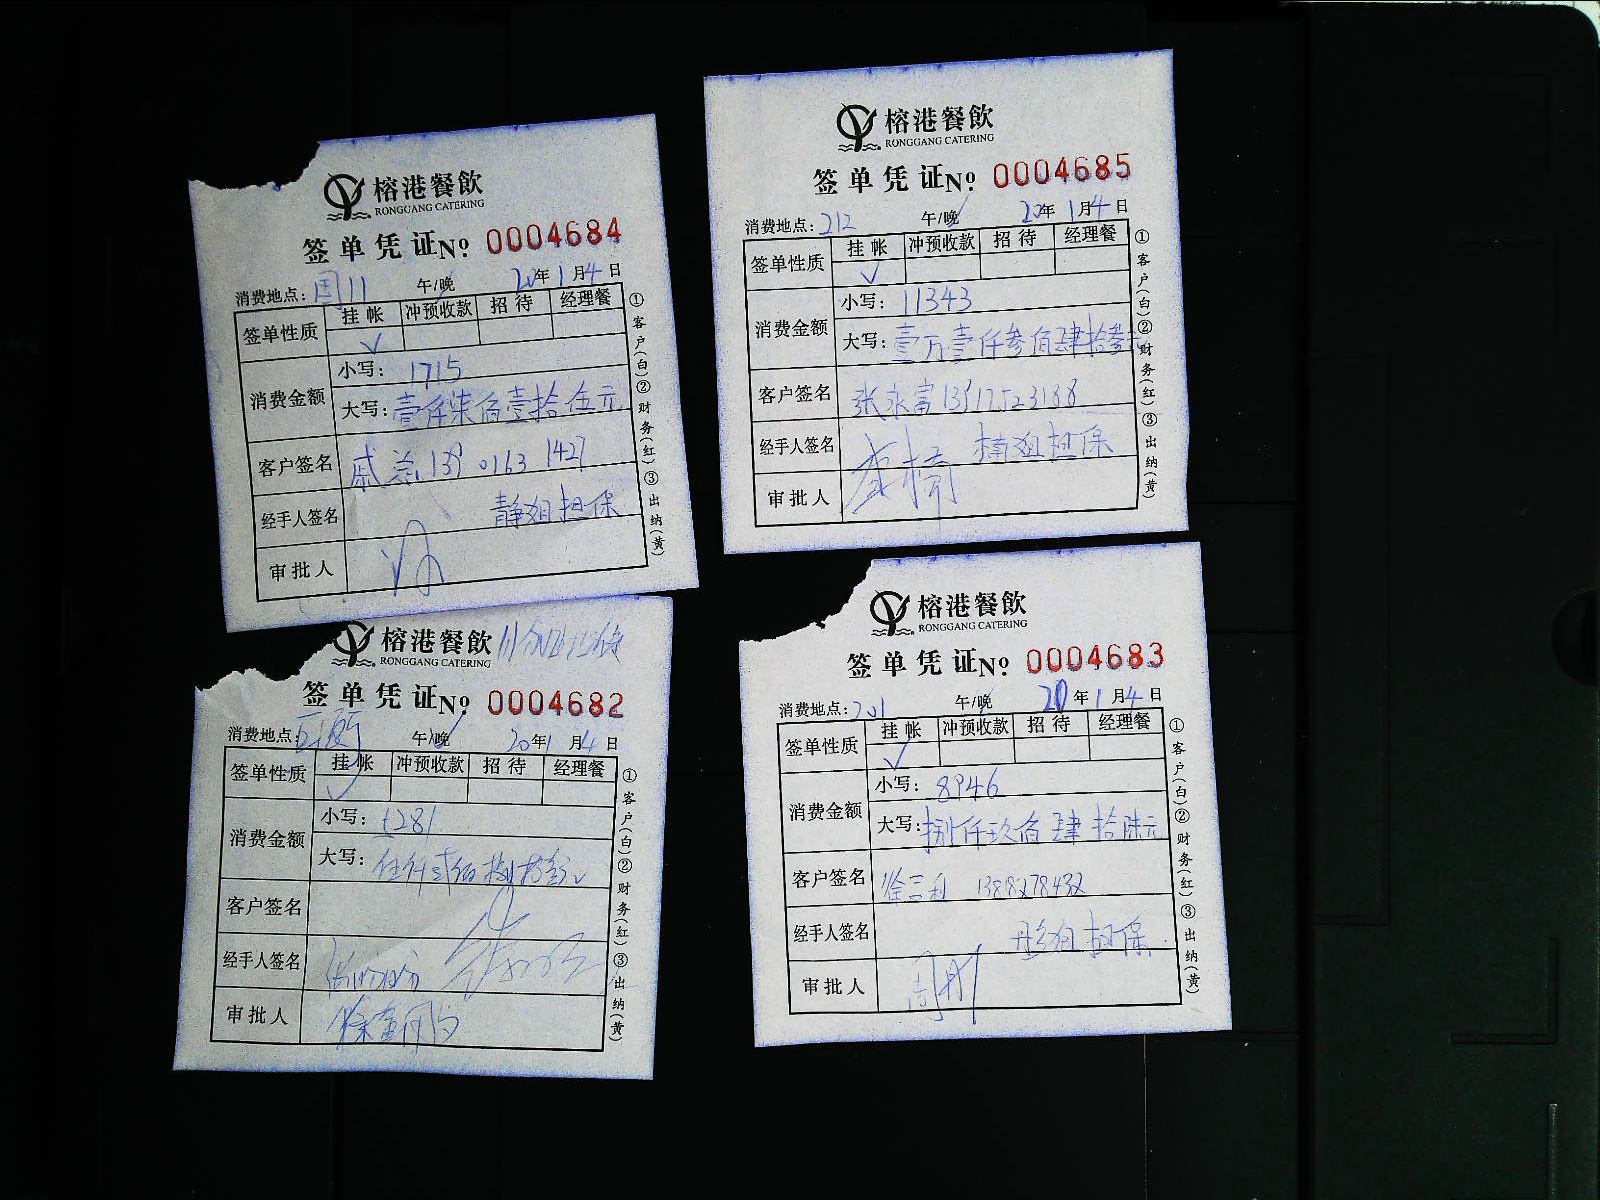 榕港餐飲
RONGGANG CATERING
签单凭证 No. 0004684
消费地点: 国11 午/晚 20年1月4日
签单性质 挂帐 冲预收款 招待 经理餐
✓
消费金额 小写: 1715
大写: 壹仟柒佰壹拾伍元
客户签名 戚总 139 0163 1427
经手人签名 静姐担保
审批人
①客户(白)②财务(红)③出纳(黄)
榕港餐飲
RONGGANG CATERING
签单凭证 No. 0004685
消费地点: 212 午/晚 20年1月4日
签单性质 挂帐 冲预收款 招待 经理餐
✓
消费金额 小写: 11343
大写: 壹万壹仟参佰肆拾参元
客户签名 张永富 13917523188
经手人签名 楠姐担保
审批人
①客户(白)②财务(红)③出纳(黄)
榕港餐飲
RONGGANG CATERING
签单凭证 No. 0004682
消费地点: 午/晚 20年1月4日
签单性质 挂帐 冲预收款 招待 经理餐
✓
消费金额 小写: 5281
大写: 伍仟贰佰捌拾壹元
客户签名
经手人签名
审批人
①客户(白)②财务(红)③出纳(黄)
榕港餐飲
RONGGANG CATERING
签单凭证 No. 0004683
消费地点: 201 午/晚 20年1月4日
签单性质 挂帐 冲预收款 招待 经理餐
✓
消费金额 小写: 8946
大写: 捌仟玖佰肆拾陆元
客户签名 徐三利
经手人签名 彤姐担保
审批人 周彤
①客户(白)②财务(红)③出纳(黄)